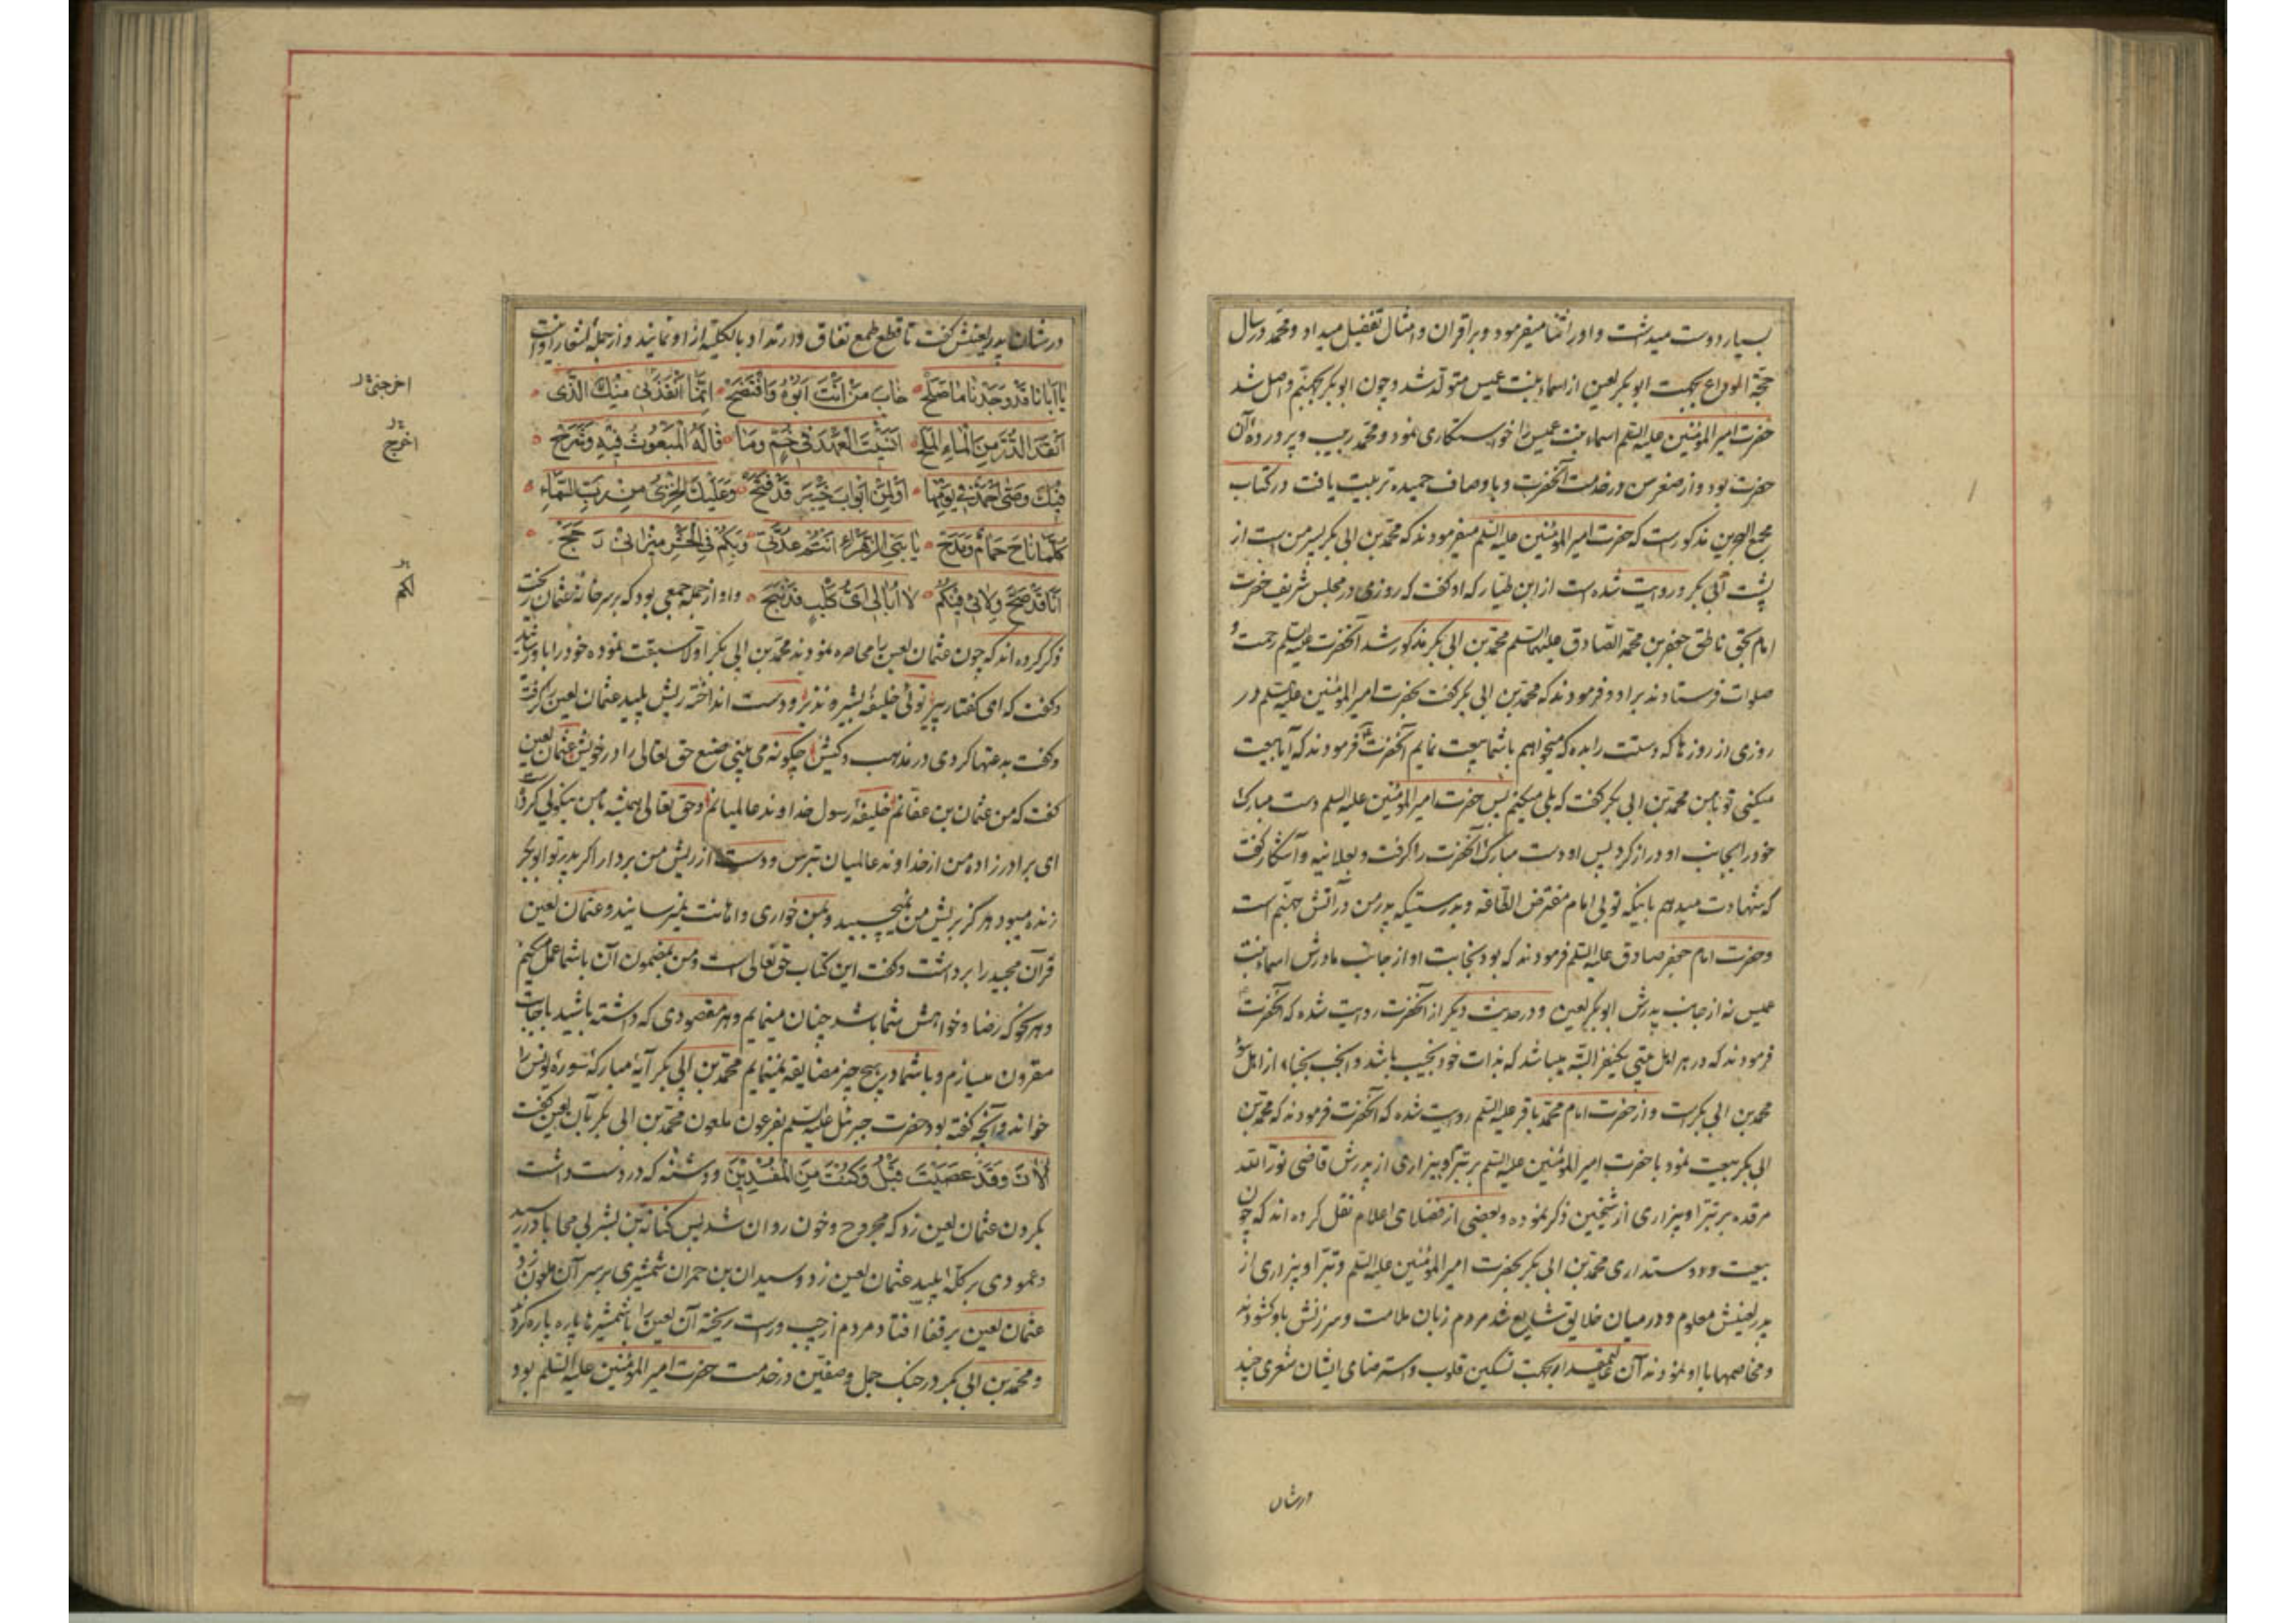 بسیار دوست میداشت و اورا ثنا میفرمود و بر اقران و امثال تفضیل میداد و محمد در سال
حجّة الوداع بجهت ابو بکر لعین از اسماء بنت عمیس متولّد شد و چون ابو بکر بجهنّم واصل شد
حضرت امیر المؤمنین علیه السّلم اسماء بنت عمیس را خواستکاری نمود و محمّد ربیب و پرورده آن
حضرت بود و از صغر سن در خدمت آنحضرت و با اوصاف حمیده تربیت یافت در کتاب
مجمع البحرین مذکور است که حضرت امیر المؤمنین علیه السّلم میفرمودند که محمّد بن ابی بکر پسر من است از
پشت ابی بکر و روایت شده است از ابن طیّار که او کفت که روزی در مجلس شریف حضرت
امام بحق ناطق جعفر بن محمّد الصّادق علیهما السّلم محمّد بن ابی بکر مذکور شد آنحضرت علیه السّلم رحمت و
صلوات فرستادند بر او و فرمودند که محمّد بن ابی بکر کفت بحضرت امیر المؤمنین علیه السّلم در
روزی از روزها که دستت را بده که میخواهم باشما بیعت نمایم آنحضرت فرمودند که آیا بیعت
میکنی تو با من محمّد بن ابی بکر کفت که بلی میکنم پس حضرت امیر المؤمنین علیه السلم دست مبارک
خود را بجانب او دراز کرد پس او دست مبارک آنحضرت را کرفت و بعلانیه و آشکار کفت
که شهادت میدهم باینکه توئی امام مفترض الطّاعة و بدرستیکه پدر من در آتش جهنّم است
و حضرت امام جعفر صادق علیه السّلم فرمودند که بود نجابت او از جانب مادرش اسماء بنت
عمیس نه از جانب پدرش ابو بکر لعین و در حدیث دیکر از آنحضرت روایت شده که آنحضرت
فرمودند که در هر اهل بیتی یکنفر البتّه میباشد که بذات خود نجیب باشد و انجب نجباء از اهل سوء
محمّد بن ابی بکر است و از حضرت امام محمّد باقر علیه السّلم روایت شده که آنحضرت فرمودند که محمّد بن
ابی بکر بیعت نمود با حضرت امیر المؤمنین علیه السّلم بر تبرّا و بیزاری از پدرش قاضی نور الله
مرقده بر تبرّا و بیزاری از شیخین ذکر نموده و بعضی از فضلای اعلام نقل کرده اند که چون
بیعت و دوستداری محمّد بن ابی بکر بحضرت امیر المؤمنین علیه السّلم و تبرّا و بیزاری از
پدر لعینش معلوم و در میان خلایق شایع شد مردم زبان ملامت و سرزنش باو کشودند
و مخاصمها با او نمودند آن بجهت تسکین قلوب و استرضای ایشان شعری چند
در شان
در شان پدر لعینش کفت تا قطع طمع نفاق و ارتداد بالکلیّه از او نمایند و از جمله اشعار او است
یا ابانا قد وجدنا ما صلح خاب من انت ابوه وافتضح انّما انقذنی منک الّذی
انقذ الدّرّ من الماء الملح انسیت العهد فی خمّ وما قاله المبعوث فیه وشرح
فیک وصّی احمد فی یومها او لمن ابواب خیبر قد فتح وعلیک الخزی من ربّ السّماء
کلّما ناح حمام وصدح یا بنی الزّهراء انتم عدّتی وبکم فی الحشر میزانی رجح
انا قد صحّ ولائی فیکم لا ابالی ایّ کلب قد نبح و او از جمله جمعی بود که بر سر خانه عثمان ریخت
ذکر کرده اند که چون عثمان لعین را محاصره نمودند محمّد بن ابی بکر اولا سبقت نموده خود را باو رسانید
و کفت که ای کفتار پیر توئی خلیفه بشیر و نذیر و دست انداخته ریش پلید عثمان لعین را کرفت
و کفت بدعتها کردی در مذهب و کیش چکونه می بینی صنع حق تعالی را در خویش عثمان لعین
کفت که من عثمان بن عفانم خلیفه رسول خداوند عالمیانم و حق تعالی همیشه با من نیکوئی کرده است
ای برادر زاده من از خداوند عالمیان بترس و دست از ریش من بردار اکر پدر تو ابو بکر
زنده میبود هرکز بریش من نمیچسبید و بمن خواری و اهانت نمیرسانید و عثمان لعین
قرآن مجید را برداشت و کفت این کتاب حق تعالی است و من بمضمون آن باشما عمل میکنم
و هر نحو که رضا و خواهش شما باشد چنان مینمایم و هر مقصودی که داشته باشید باجابت
مقرون میسازم و باشما در هیچ چیز مضایقه نمینمایم محمّد بن ابی بکر آیه مبارکه سوره یونس را
خواند و آنچه کفته بود حضرت جبرئیل علیه السّلم بفرعون ملعون محمّد بن ابی بکر بآن لعین کفت
الآن وقد عصیت قبل وکنت من المفسدین و دشنه که در دست داشت
بکردن عثمان لعین زد که مجروح و خون روان شد پس کنانة بن بشر بی محابا در رسید
و عمودی بر کلّه پلید عثمان لعین زد و سیدان بن حمران شمشیری بر سر آن ملعون زد
عثمان لعین بر قفا افتاد مردم از چپ و راست ریخته آن لعین را با شمشیرها پاره پاره کردند
و محمّد بن ابی بکر در جنک جمل و صفّین در خدمت حضرت امیر المؤمنین علیه السّلم بود
اخرجنی
اخرج
لکم